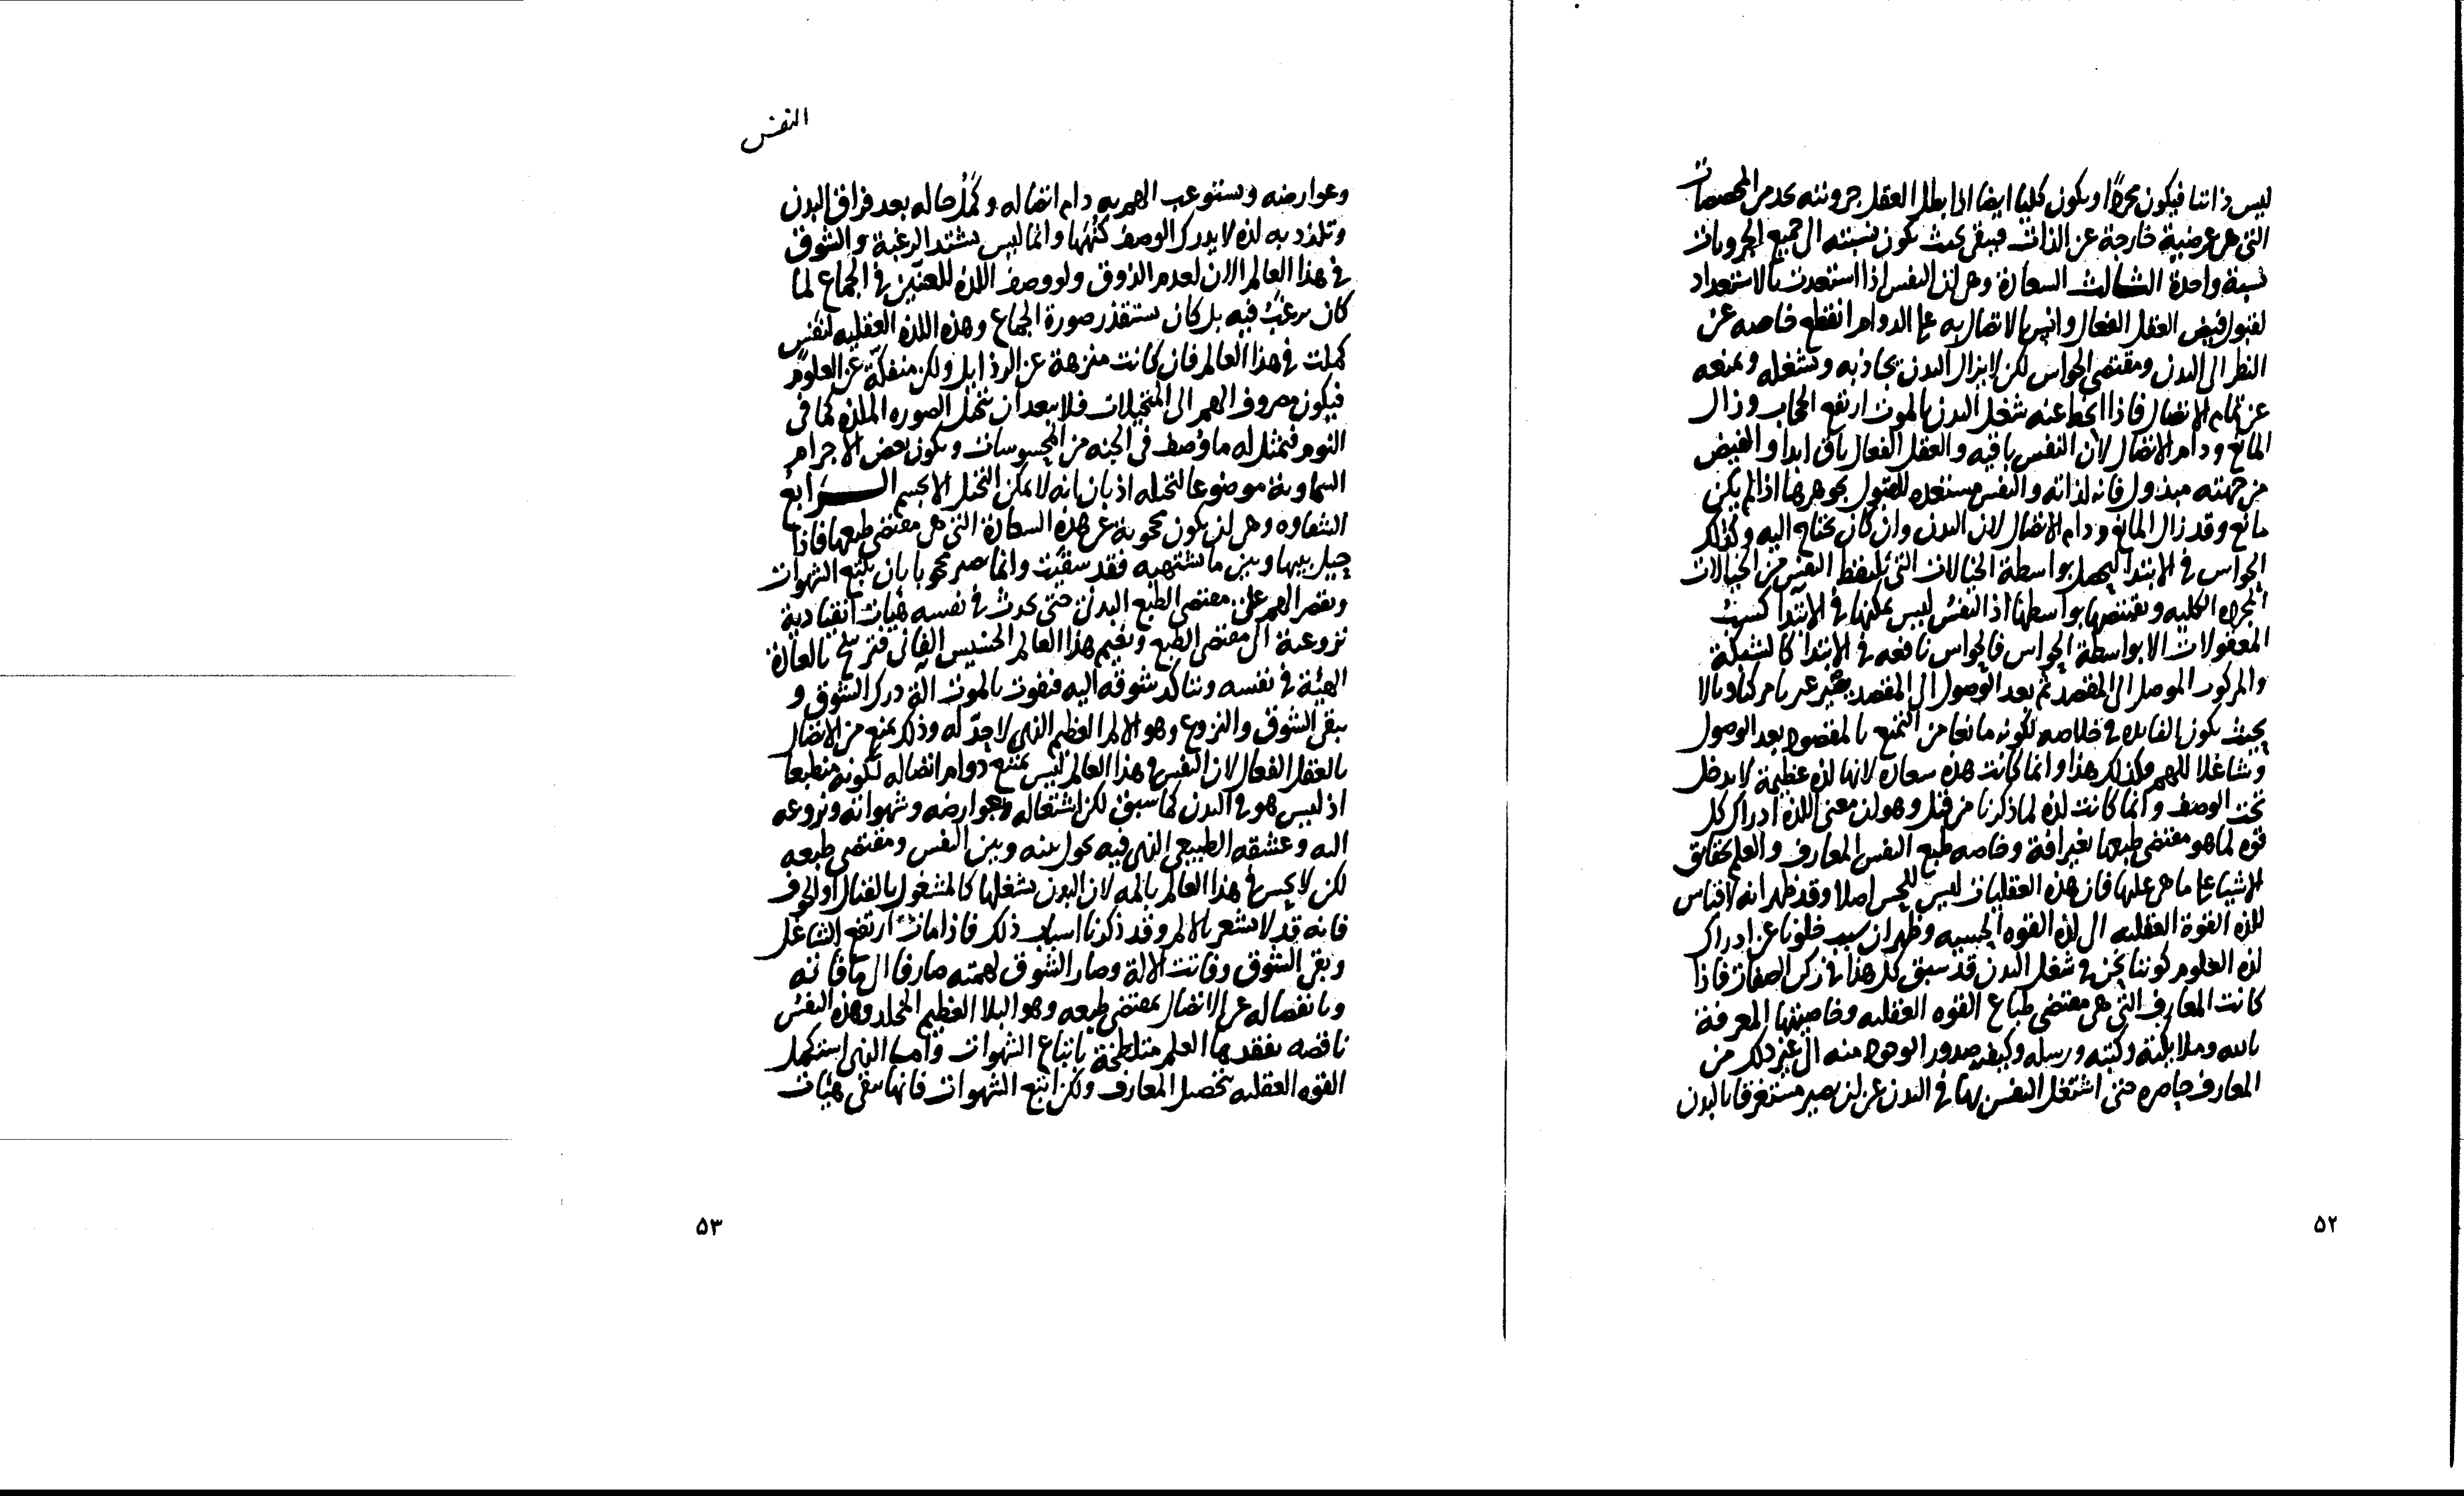 ليس ذاتنا فيكون مجردًا ويكون كليا ايضا اذا بطل العقل جزويته بحد من المخصصات
التي هي عرضية خارجة عن الذات فيبقى بحيث يكون نسبته الى جميع الجزويات
نسبة واحدة الثالث السعادة وهي ان النفس اذا استعدت بالاستعداد
لقبول فيض العقل الفعال وانس بالاتصال به على الدوام انقطع حاصه عن
النظر الى البدن ومقتضى الحواس لكن لا يزال البدن يجاذبه وتشغله ويمنعه
عن تمام الاتصال فاذا انحط عنه شغل البدن بالموت ارتفع الحجاب وزال
المانع ودام الاتصال لان النفس باقيه والعقل الفعال باق ابدا والفيض
من جهته مبذول فانه لذاته والنفس مستعده للقبول بجوهرها اذا لم يكن
مانع وقد زال المانع ودام الاتصال لان البدن وان كان يحتاج اليه وكذلك
الحواس في الابتدا ليحصل بواسطة الخيالات التي يلتقط النفس من الخيالات
المجرده الكليه ويقتنصها بواسطتها اذ النفس ليس يمكنها في الابتدا كسب
المعقولات الا بواسطة الحواس فالحواس نافعه في الابتدا كالشبكة
والمركوب الموصل الى المقصد ثم بعد الوصول الى المقصد يصير عن ما مركبا وبالا
بحيث يكون الفايده في خلاصه لكونه مانعا من التمتع بالمقصود بعد الوصول
وشاغلا للهم وكذلك هذا وانما كانت هذه سعاده لانها لذه عظيمة لا يدخل
تحت الوصف وانما كانت لذه لما ذكرنا من قبل وهو ان معنى اللذه ادراك كل
قوه لما هو مقتضى طبعها بغير افة وخاصه طبع النفس المعارف والعلم بحقايق
الاشيا على ما هي عليها فان هذه العقليات ليس للحس اصلا وقد ظهر انه لا قياس
للذه القوة العقليه الى لذه القوه الحسيه وظهر ان سبب خلونا عن ادراك
لذه العلوم كوننا نحن في شغل البدن قد سبق كل هذا في ذكر الصفات فاذا
كانت المعارف التي هي مقتضى طباع القوه العقليه وخاصيتها المعرفة
بالله وملايكته وكتبه ورسله وكيفيه صدور الوجود منه الى غير ذلك من
المعارف حاصره حتى اشتغل النفس بها في البدن عن ان يصير مستغرقا بالبدن
٥٢
النفس
وعوارضه ويستوعب الهم به دام اتصاله وكمل حاله بعد فراق البدن
وتلذذ به لذه لا يدرك الوصف كنهها وانما ليس يشتد الرغبة والشوق
في هذا العالم الان لعدم الذوق ولو وصف اللذه للعنين في الجماع لما
كان يرغب فيه بل كان يستقذر صورة الجماع وهذه اللذه العقليه لنفس
كملت في هذا العالم فان كانت منزهة عن الرذايل ولكن منفكة عن العلوم
فيكون مصروف الهم الى المتخيلات فلا يبعد ان يتخيل الصوره الملذه كما في
النوم فيمثل له ما وصف في الجنه من المحسوسات ويكون بعض الاجرام
السماوية موضوعا لتخيله اذ بان انه لا يمكن التخيل الا بجسم الرابع
الشقاوه وهي ان يكون محجوبة عن هذه السعادة التي هي مقتضى طبعها فاذا
حيل بينها وبين ما تشتهيه فقد شقيت وانما يصير محجوبا بان يتبع الشهوات
ويقصر الهم على مقتضى الطبع البدني حتى يحدث في نفسه هيات انقيادية
نزوعية الى مقتضى الطبع ونعيم هذا العالم الخسيس الفاني فترسخ بالعادة
الهيئة في نفسه ويتأكد شوقه اليه فيفوت بالموت الة درك الشوق و
يبقى الشوق والنزوع وهو الالم العظيم الذي لا حد له وذلك يمنع من الاتصال
بالعقل الفعال لان النفس في هذا العالم ليس يمتنع دوام اتصاله لكونه منطبعا
اذ ليس هو في البدن كما سبق لكن اشتغاله وعوارضه وشهواته ونزوعه
اليه وعشقه الطبيعي الذي فيه يحول بينه وبين النفس ومقتضى طبعه
لكن لا يحس في هذا العالم بالمه لان البدن يشغلها كالمشغول بالقتال او الخوف
فانه قد لا يشعر بالالم وقد ذكرنا اسباب ذلك فاذا مات ارتفع الشاغل
وبقى الشوق وفاتت الالة وصار الشوق لهمته صارفا الى ما فاته
وبانفصاله عن الاتصال بمقتضى طبعه وهو البلا العظيم المخلد وهذه النفس
ناقصه بفقدها العلم متلطخة باتباع الشهوات واما الذي استكمل
القوه العقليه بتحصيل المعارف ولكن اتبع الشهوات فانها يبقى هيات
٥٣